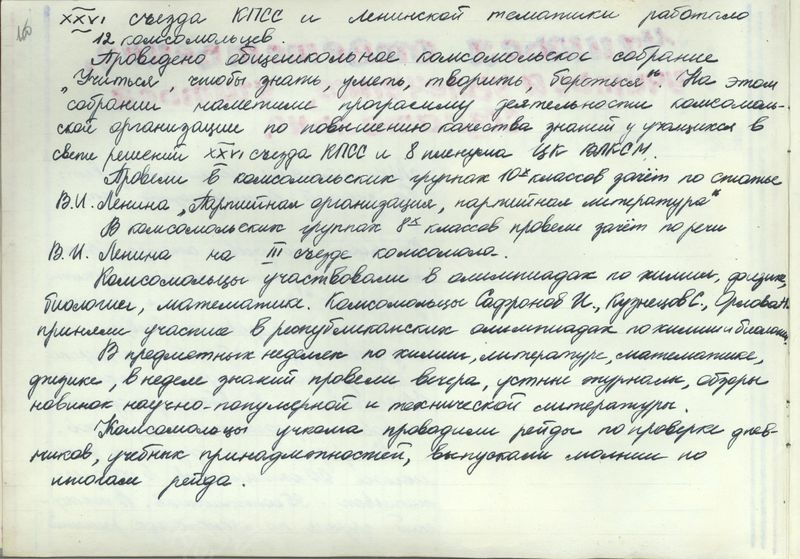 XXVI съезда КПСС и Ленинской тематики работало
12 комсомольцев.
Проведено общешкольное комсомольское собрание
„Учиться, чтобы знать, уметь, творить, бороться". На этом
собрании наметили программу деятельности комсомоль-
ской организации по повышению качества знаний у учащихся в
свете решений XXVI съезда КПСС и 8 пленума ЦК ВЛКСМ.
Провели в комсомольских группах 10х классов зачёт по статье
В.И. Ленина „Партийная организация, партийная литература"
В комсомольских группах 8х классов провели зачёт по речи
В.И. Ленина на III съезде комсомола.
Комсомольцы участвовали в олимпиадах по химии, физике,
биологии, математике. Комсомольцы Сафронов И., Кузнецов С., Орлова Н.
приняли участие в республиканских олимпиадах по химии и биологии.
В предметных неделях по химии, литературе, математике,
физике, в неделе знаний провели вечера, устные журналы, обзоры
новинок научно-популярной и технической литературы.
Комсомольцы учкома проводили рейды по проверке днев-
ников, учебных принадлежностей, выпускали молнии по
итогам рейда.